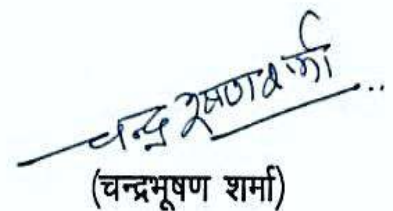 चन्द्रभूषण शर्मा
(चन्द्रभूषण शर्मा)